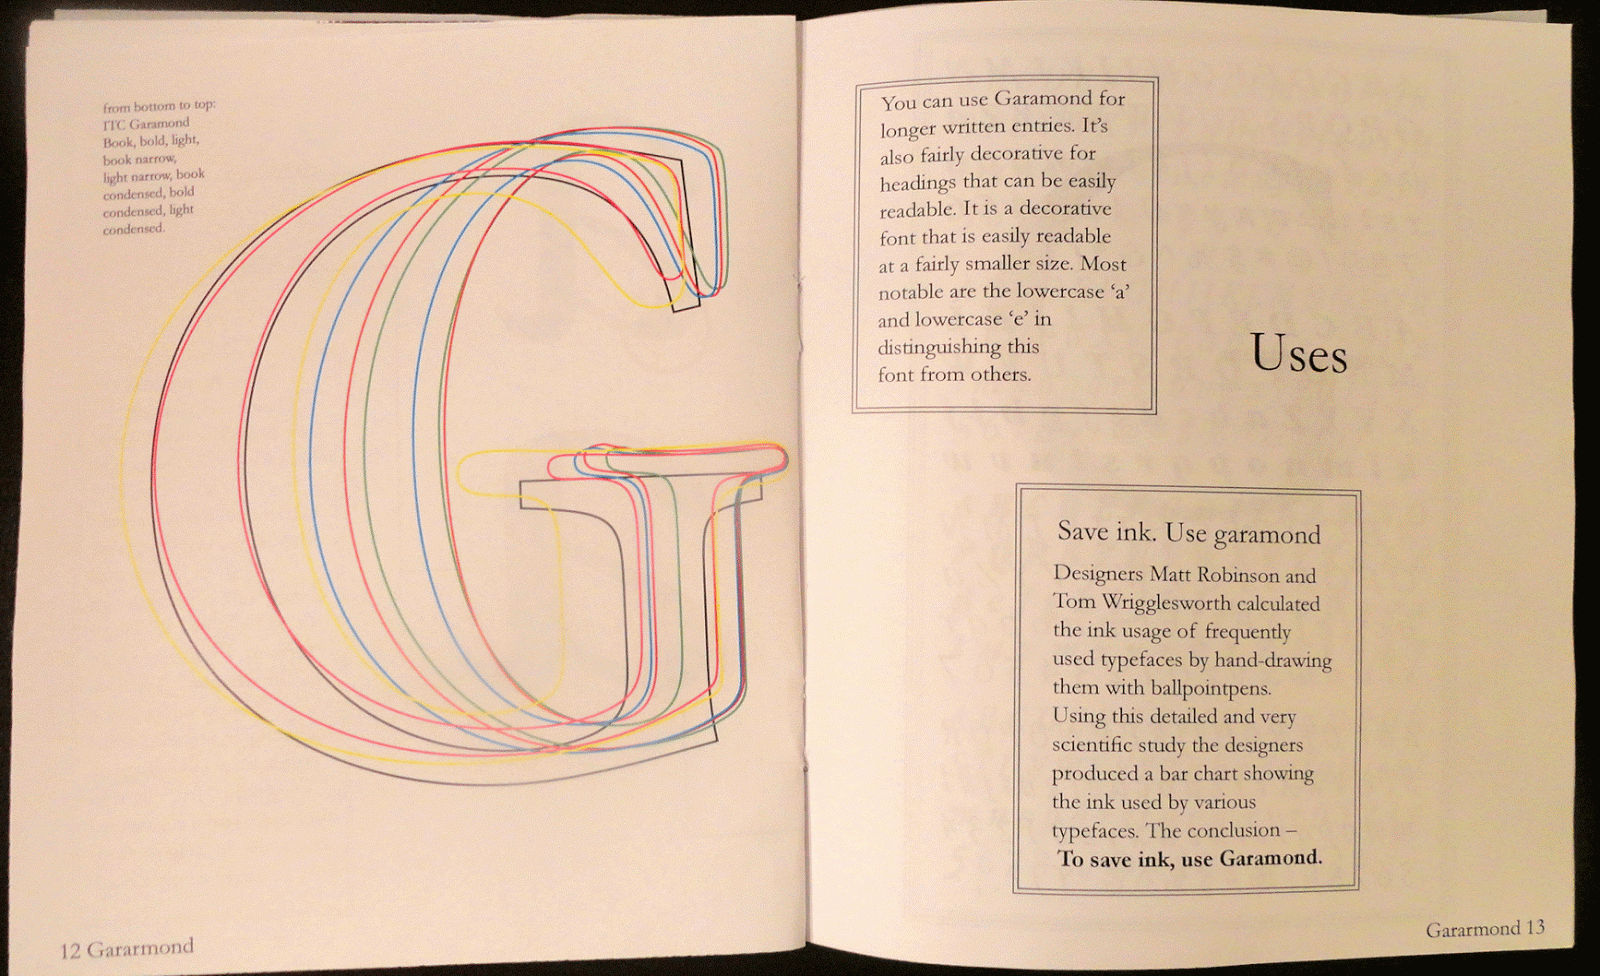 from bottom to top:
ITC Garamond
Book, bold, light,
book narrow,
light narrow, book
condensed, bold
condensed, light
condensed.
12 Gararmond
You can use Garamond for
longer written entries. It’s
also fairly decorative for
headings that can be easily
readable. It is a decorative
font that is easily readable
at a fairly smaller size. Most
notable are the lowercase ‘a’
and lowercase ‘e’ in
distinguishing this
font from others.
Uses
Save ink. Use garamond
Designers Matt Robinson and
Tom Wrigglesworth calculated
the ink usage of frequently
used typefaces by hand-drawing
them with ballpointpens.
Using this detailed and very
scientific study the designers
produced a bar chart showing
the ink used by various
typefaces. The conclusion –
To save ink, use Garamond.
Gararmond 13